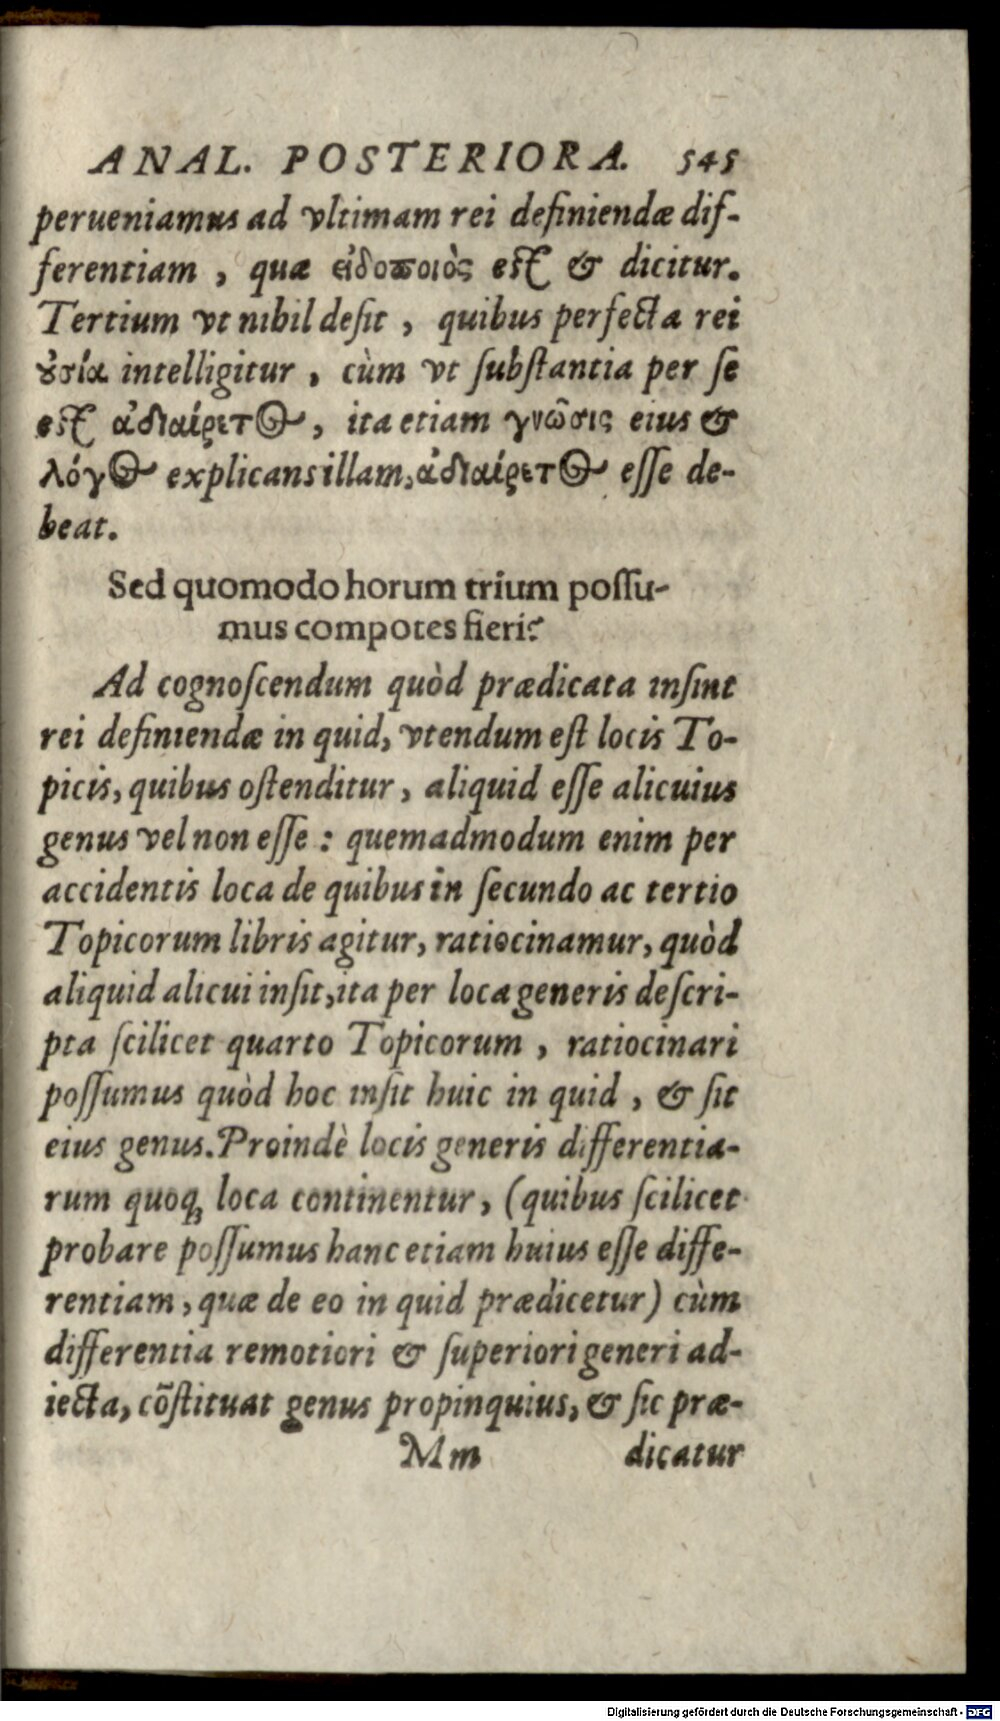 ANAL. POSTERIORA. 545
perueniamus ad vltimam rei definiendæ dif-
ferentiam, quæ εἰδοποιὸς est & dicitur.
Tertium vt nihil desit, quibus perfecta rei
ȣσία intelligitur, cùm vt substantia per se
est ἀδιαίρετος, ita etiam γνῶσις eius &
λόγος explicans illam, ἀδιαίρετος esse de-
beat.
Sed quomodo horum trium possu-
mus compotes fieri?
Ad cognoscendum quòd prædicata insint
rei definiendæ in quid, vtendum est locis To-
picis, quibus ostenditur, aliquid esse alicuius
genus vel non esse: quemadmodum enim per
accidentis loca de quibus in secundo ac tertio
Topicorum libris agitur, ratiocinamur, quòd
aliquid alicui insit, ita per loca generis descri-
pta scilicet quarto Topicorum, ratiocinari
possumus quòd hoc insit huic in quid, & sit
eius genus. Proindè locis generis differentia-
rum quoq; loca continentur, (quibus scilicet
probare possumus hanc etiam huius esse diffe-
rentiam, quæ de eo in quid prædicetur) cùm
differentia remotiori & superiori generi ad-
iecta, cõstituat genus propinquius, & sic præ-
Mm dicatur
Digitalisierung gefördert durch die Deutsche Forschungsgemeinschaft - DFG